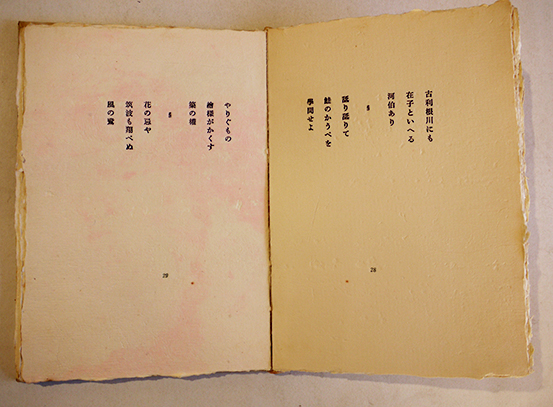 古利根川にも
在子といへる
河伯あり
§
認り認りて
鮭のかうべを
學問せよ
28
やりぐもの
繪樣がかくす
築の
§
花の忌や
筑波も翔べぬ
風の鷲
29